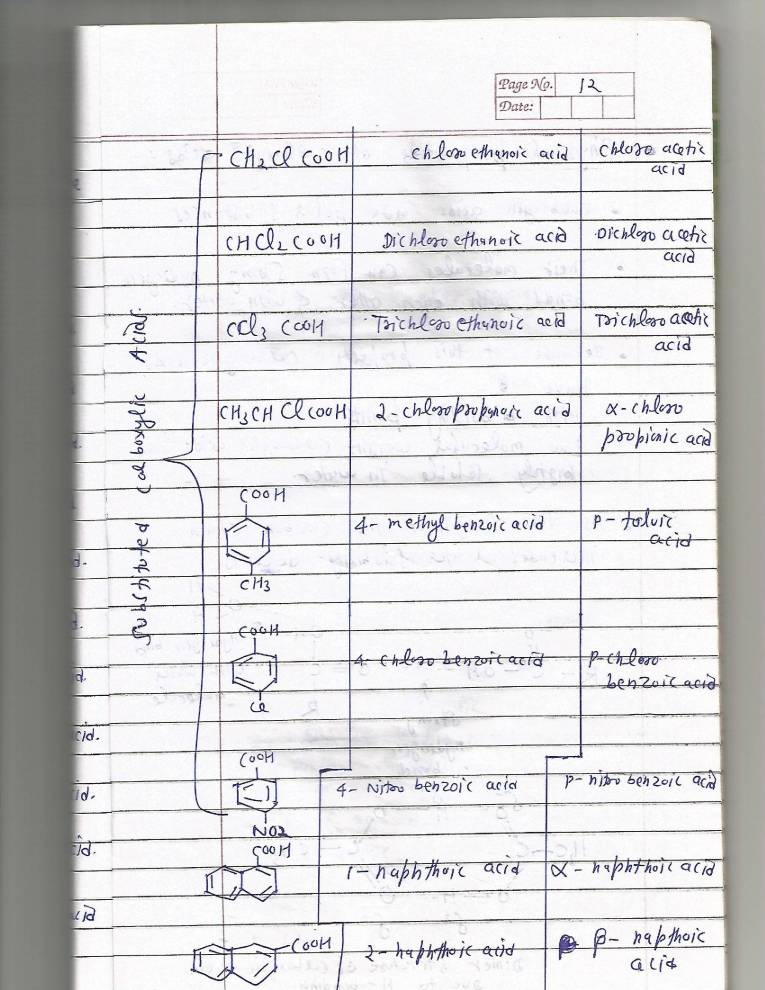 Page No. 12
Date:
Substituted Carboxylic Acids.
CH2Cl COOH chloro ethanoic acid chloro acetic
acid
CHCl2 COOH Dichloro ethanoic acid Dichloro acetic
acid
CCl3 COOH Trichloro ethanoic acid Trichloro acetic
acid
CH3CH Cl COOH 2-chloropropanoic acid α-chloro
propionic acid
COOH
4- methyl benzoic acid p-toluic
acid
CH3
COOH
4- chloro benzoic acid p-chloro
benzoic acid
Cl
COOH
4- Nitro benzoic acid p-nitro benzoic acid
NO2
COOH
1-naphthoic acid α-naphthoic acid
COOH 2-naphthoic acid β-napthoic
acid
d.
d.
cid.
id.
id.
cid